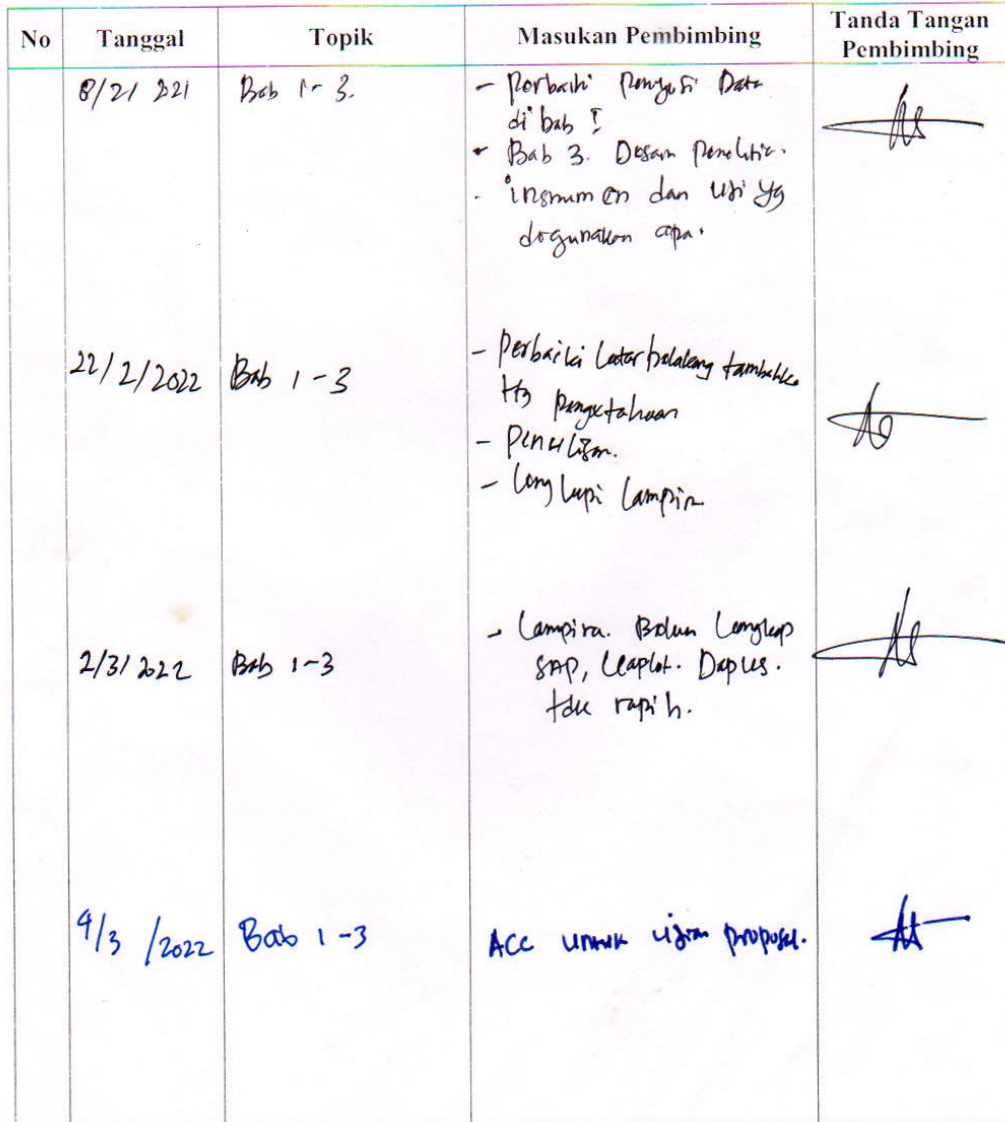 No Tanggal Topik Masukan Pembimbing Tanda Tangan Pembimbing
8/21 221 Bab 1-3. - Perbaiki Data
di bab I
- Bab 3. Desain
- instrumen dan uji yg
digunakan apa.
22/2/2022 Bab 1-3 - Perbaiki Latar belakang tambahkan
ttg pengetahuan
- Penulisan.
- Lengkapi Lampiran
2/3/2022 Bab 1-3 - Lampiran. Belum Lengkap
SAP, Leaplet. Dapus.
tdk rapih.
9/3/2022 Bab 1-3 ACC untuk ujian proposal.